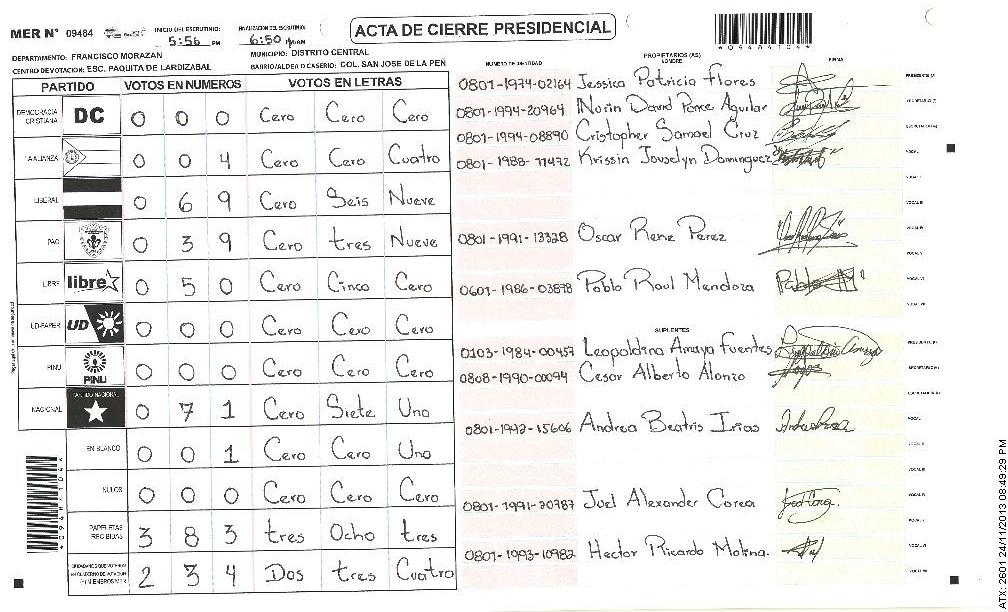 MER N° 09484
INICIO DEL ESCRUTINIO: 5:56 PM
FINALIZACION DEL ESCRUTINIO: 6:50
ACTA DE CIERRE PRESIDENCIAL
DEPARTAMENTO: FRANCISCO MORAZAN
MUNICIPIO: DISTRITO CENTRAL
CENTRO DE VOTACION: ESC. PAQUITA DE LARDIZABAL
BARRIO/ALDEA O CASERIO: COL. SAN JOSE DE LA PEÑ
PARTIDO VOTOS EN NUMEROS VOTOS EN LETRAS
DEMOCRACIA CRISTIANA DC 0 0 0 Cero Cero Cero
ALIANZA 0 0 4 Cero Cero Cuatro
LIBERAL 0 6 9 Cero Seis Nueve
PAC 0 3 9 Cero tres Nueve
LIBRE libre 0 5 0 Cero Cinco Cero
UD-FAPER UD 0 0 0 Cero Cero Cero
PINU PINU 0 0 0 Cero Cero Cero
NACIONAL PARTIDO NACIONAL 0 7 1 Cero Siete Uno
EN BLANCO 0 0 1 Cero Cero Uno
NULOS 0 0 0 Cero Cero Cero
PAPELETAS RECIBIDAS 3 8 3 tres Ocho tres
2 3 4 Dos tres Cuatro
NUMERO DE IDENTIDAD
PROPIETARIOS (AS)
NOMBRE
FIRMA
0801-1974-02164 Jessica Patricia Flores
0801-1994-20964 Nurin David Ponce Aguilar
0801-1994-08890 Cristopher Samael Cruz
0801-1988-11472 Krissin Jouselyn Dominguez
0801-1991-13328 Oscar Rene Perez
0601-1986-03878 Pablo Raul Mendoza
SUPLENTES
0103-1984-00457 Leopoldina Amaya Fuentes
0808-1990-00094 Cesar Alberto Alonzo
0801-1992-15606 Andrea Beatris Irias
0801-1991-20787 Juel Alexander Corea
0801-1993-10982 Hector Ricardo Molina.
ATX: 2601 24/11/2013 08:49:29 PM